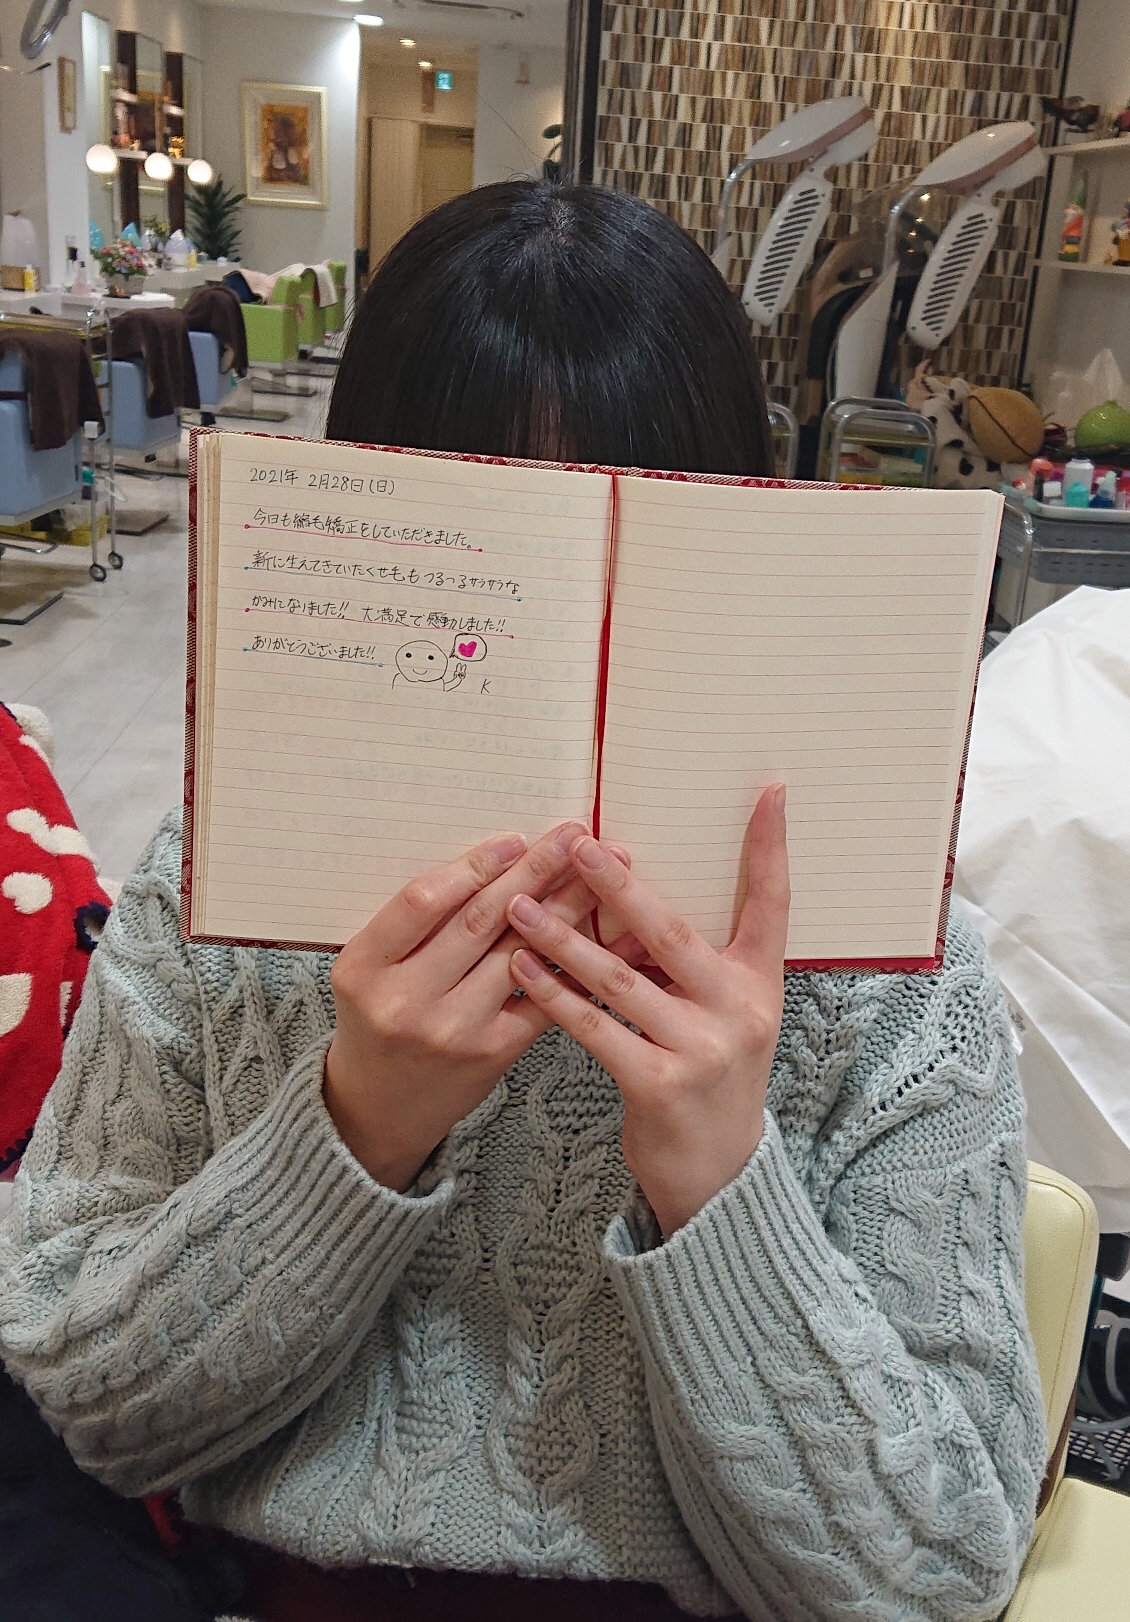 2021年 2月28日(日)
今日も縮毛矯正をしていただきました。
新に生えてきていたくせ毛もつるつるサラサラな
かみになりました!! 大満足で感動しました!!
ありがとうございました!!
K